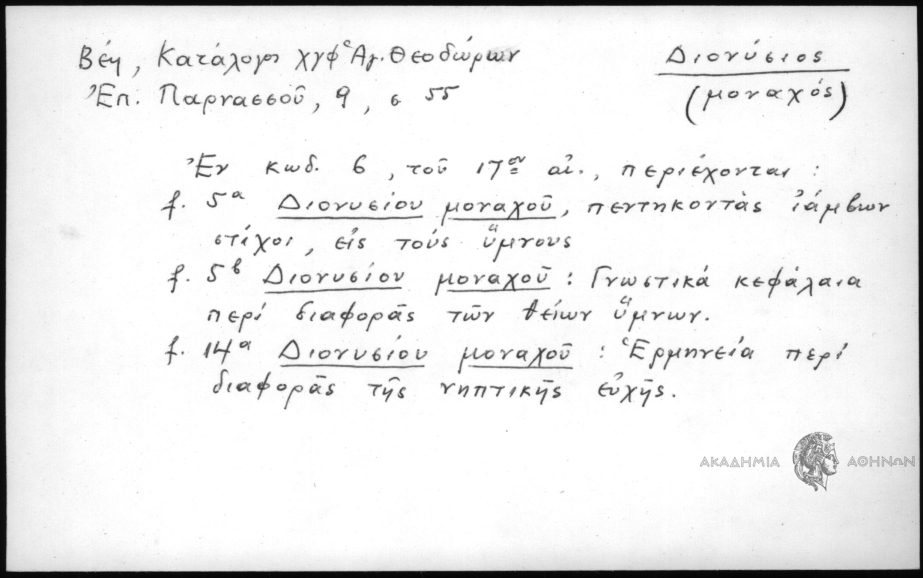 Βέη, Κατάλογος χγφ Ἁγ. Θεοδώρων
Διονύσιος
Ἐπ. Παρνασσοῦ, 9, σ 55
(μοναχός)
Ἐν κωδ. 6, τοῦ 17ου αἰ., περιέχονται:
f. 5α Διονυσίου μοναχοῦ, πεντηκοντὰς ἰάμβων
στίχοι, εἰς τοὺς ὕμνους
f. 5β Διονυσίου μοναχοῦ: Γνωστικά κεφάλαια
περί διαφορᾶς τῶν θείων ὕμνων.
f. 14α Διονυσίου μοναχοῦ: Ἑρμηνεία περί
διαφορᾶς τῆς νηπτικῆς εὐχῆς.
ΑΚΑΔΗΜΙΑ ΑΘΗΝΩΝ